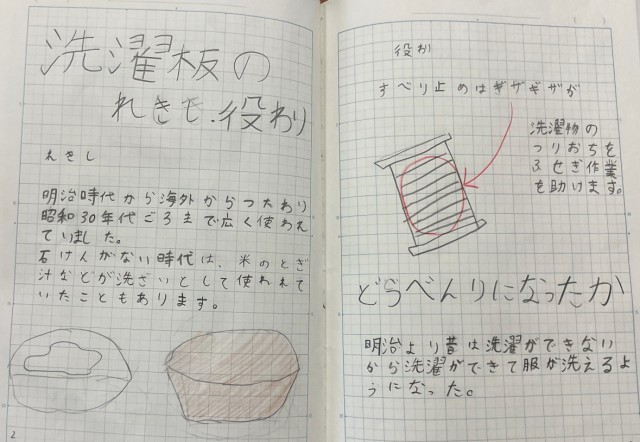 洗濯板の
れきし・役わり
れきし
明治時代から海外からつたわり
昭和30年代ごろまで広く使われ
ていました。
石けんがない時代は、米のとぎ
汁などが洗ざいとして使われて
いたこともあります。
2
役わ
すべり止めはギザギザが
洗濯物の
つりおちを
ふせぎ作業
を助けます。
どうべんりになったか
明治より昔は洗濯ができない
から洗濯ができて服が洗えるよ
うになった。